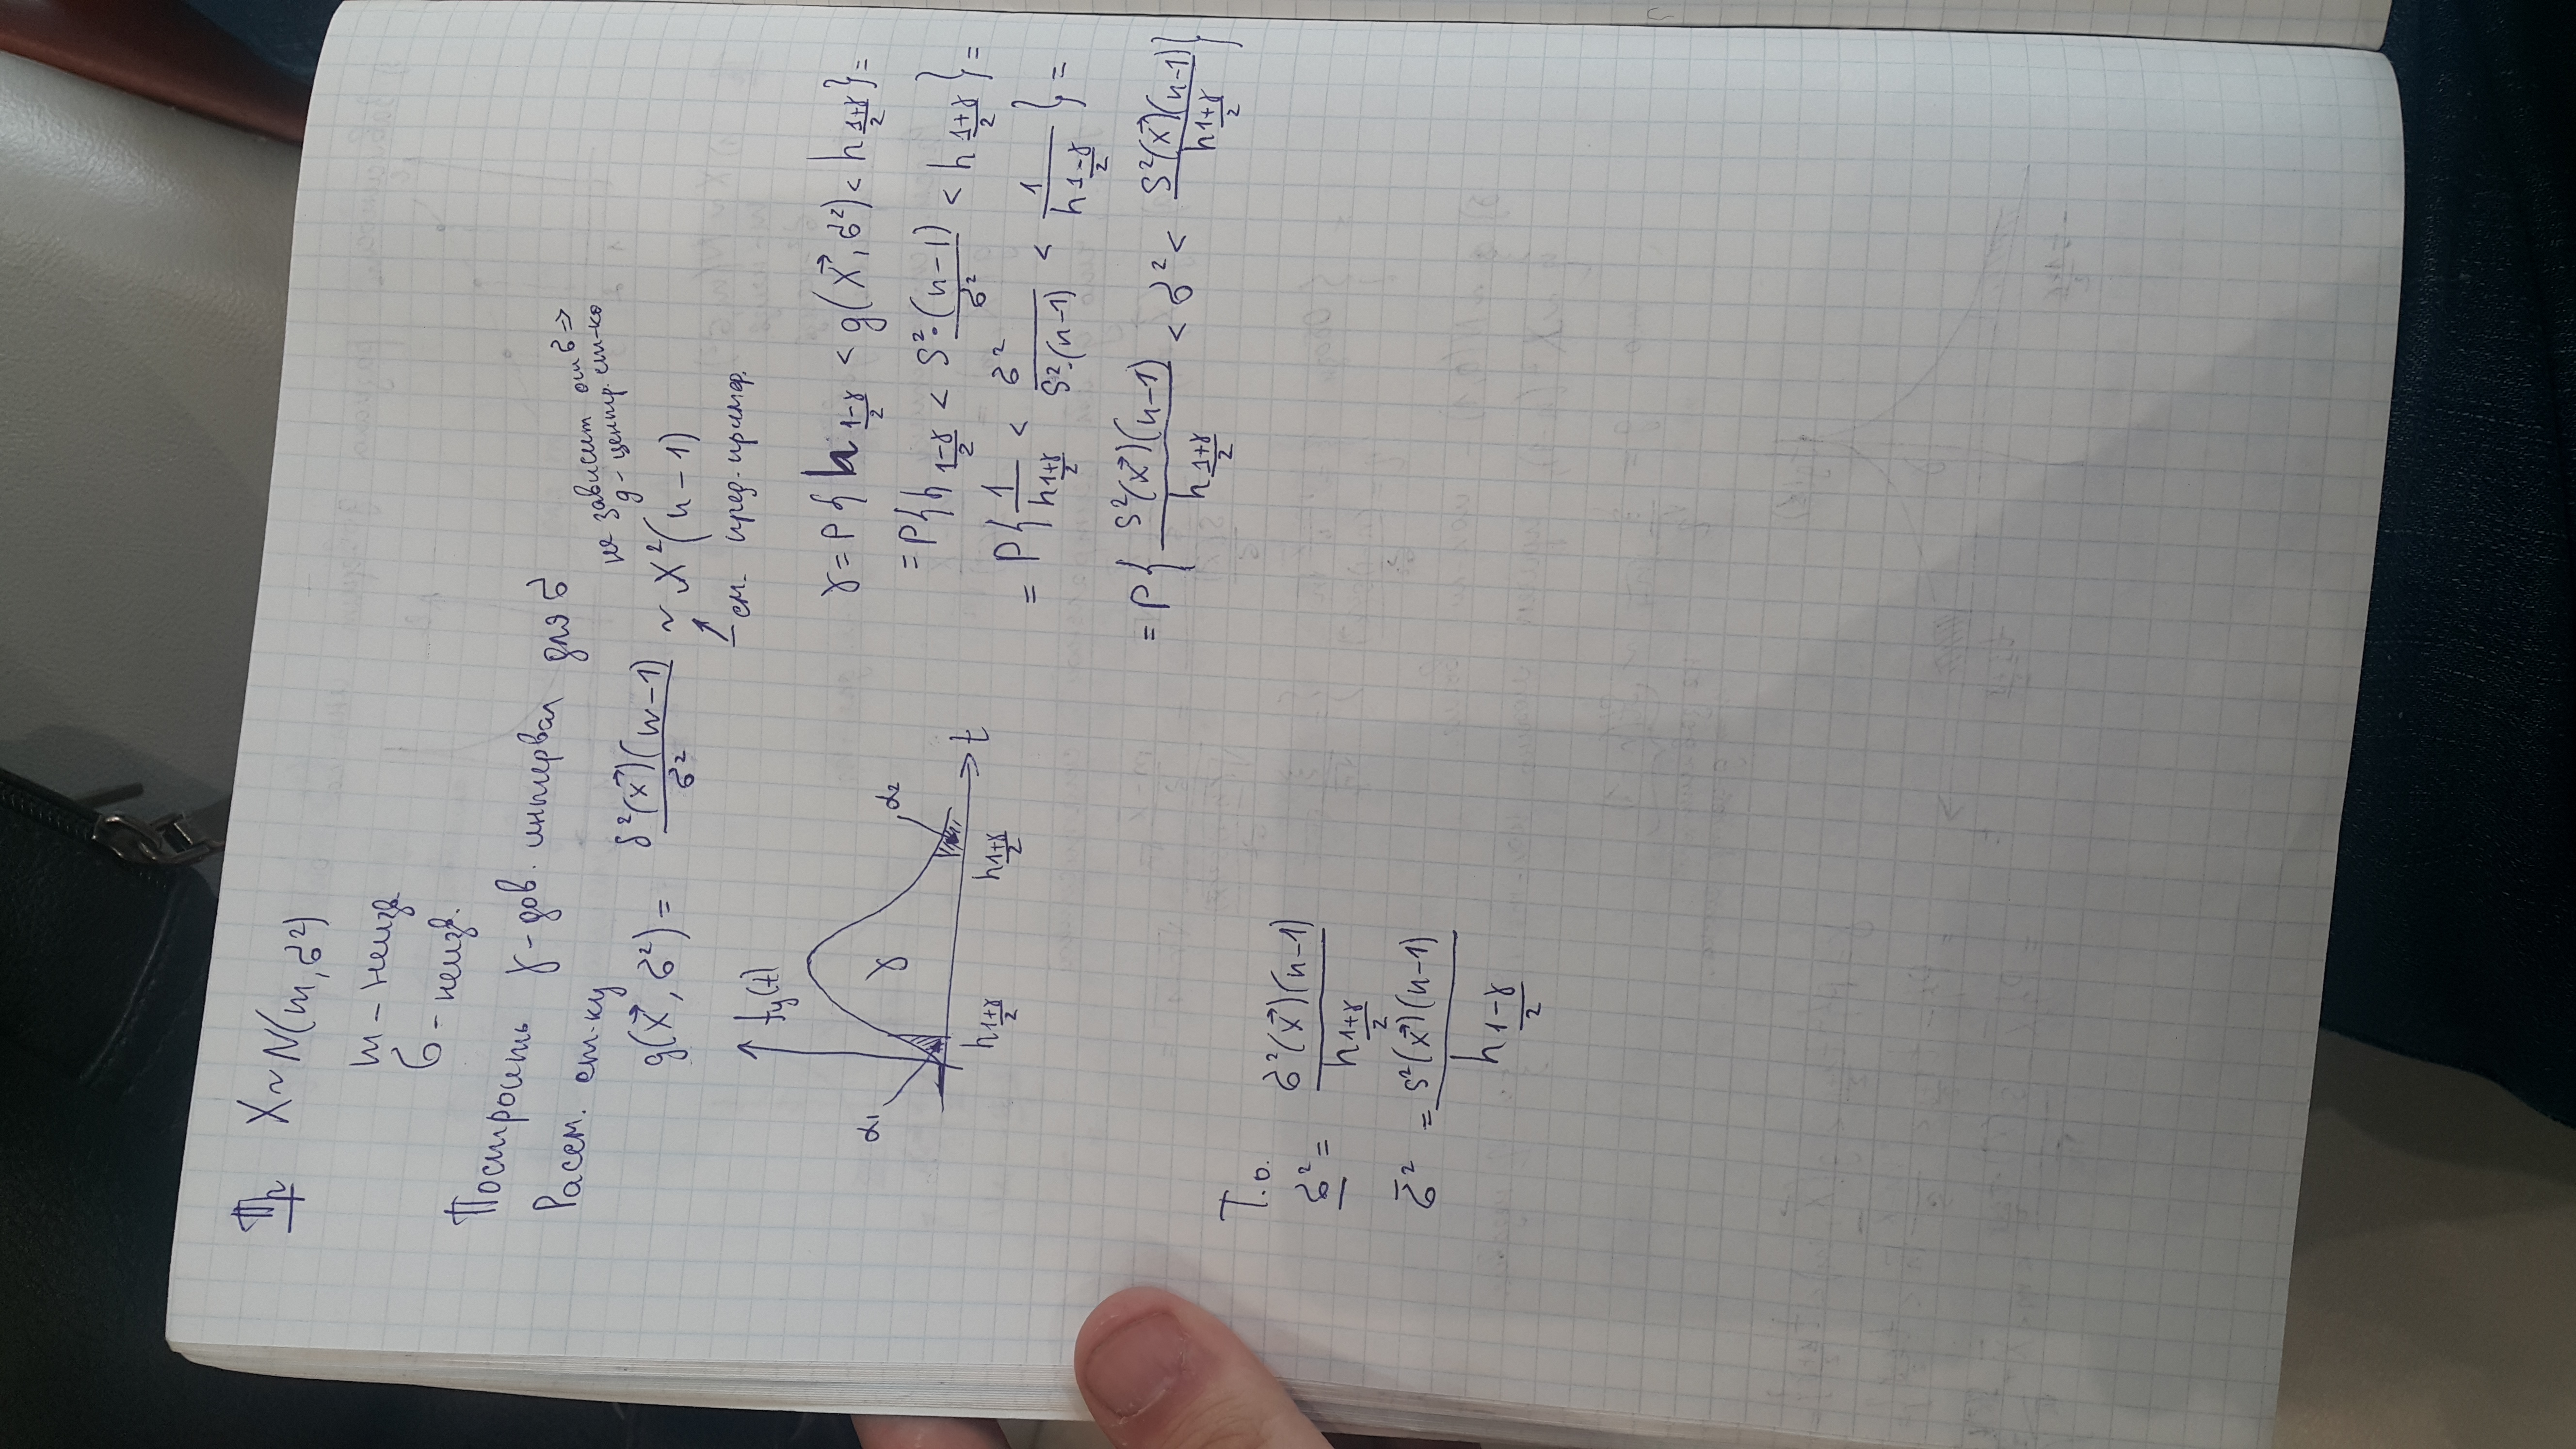 Пр X ~ N(m, σ²)
m – неизв.
σ – неизв.
Построить γ-дов. интервал для σ
Рассм. ст-ку
не зависит от σ ⇒
g – центр. ст-ка
g(X⃗, σ²) = S²(X⃗)(n−1) / σ² ~ χ²(n−1)
см. пред. пример.
f_y(t)
α₁ γ α₂
h_{(1+γ)/2} h_{(1+γ)/2} t
γ = P{h_{(1−γ)/2} < g(X⃗, σ²) < h_{(1+γ)/2}} =
= P{h_{(1−γ)/2} < S²·(n−1) / σ² < h_{(1+γ)/2}} =
= P{1 / h_{(1+γ)/2} < σ² / S²·(n−1) < 1 / h_{(1−γ)/2}} =
= P{S²(X⃗)(n−1) / h_{(1+γ)/2} < σ² < S²(X⃗)(n−1) / h_{(1+γ)/2}}
Т.о.
σ̲² = σ²(X⃗)(n−1) / h_{(1+γ)/2}
σ̄² = S²(X⃗)(n−1) / h_{(1−γ)/2}